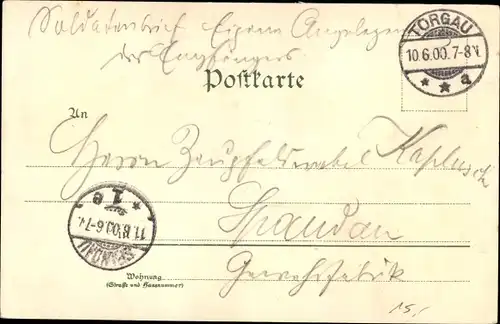 Soldatenbrief Eigene Angelegen
des Empfängers
TORGAU
10.6.00.7-8V.
* * a
Postkarte
An
Herrn
Spandau
Gewehrfabrik
SPANDAU
11.6.00.6-7V.
* 1 e
Wohnung
(Straße und Hausnummer)
15.